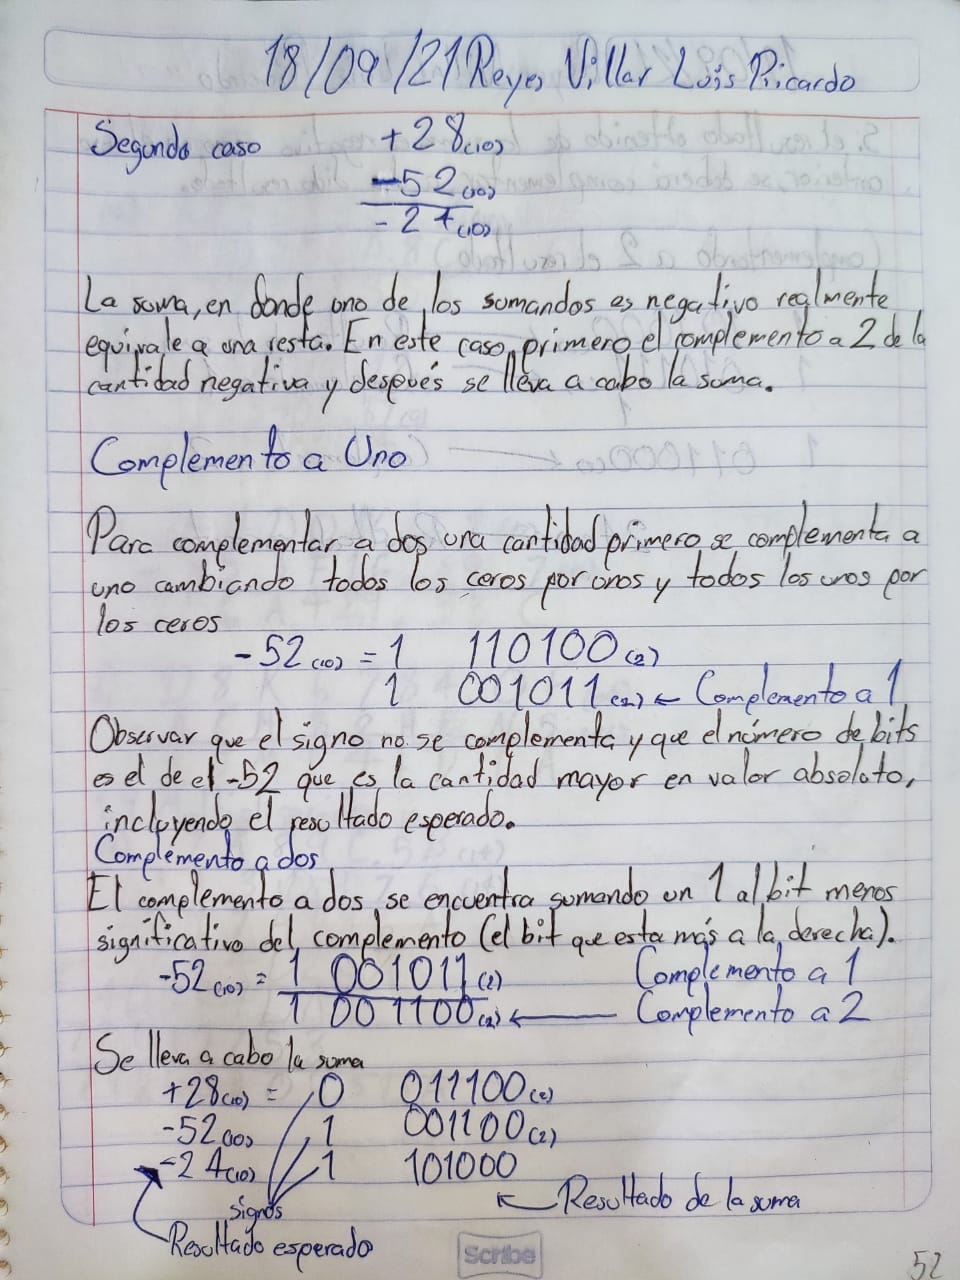 18/09/21 Reyes Villar Luis Ricardo
Segundo caso +28(10)
-52(10)
-24(10)
La suma, en donde uno de los sumandos es negativo realmente
equivale a una resta. En este caso primero el complemento a 2 de la
cantidad negativa y después se lleva a cabo la suma.
Complemento a Uno
Para complementar a dos una cantidad primero se complementa a
uno cambiando todos los ceros por unos y todos los unos por
los ceros
-52(10) = 1 110100(2)
1 001011(2) ← Complemento a 1
Observar que el signo no se complementa y que el número de bits
es el de el -52 que es la cantidad mayor en valor absoluto,
incluyendo el resultado esperado.
Complemento a dos
El complemento a dos se encuentra sumando un 1 al bit menos
significativo del complemento (el bit que esta más a la derecha).
-52(10) = 1 001011(2) Complemento a 1
1 001100(2) ← Complemento a 2
Se lleva a cabo la suma
+28(10) = 0 011100(2)
-52(10) 1 001100(2)
-24(10) 1 101000
← Resultado de la suma
signos
Resultado esperado
Scribe
52